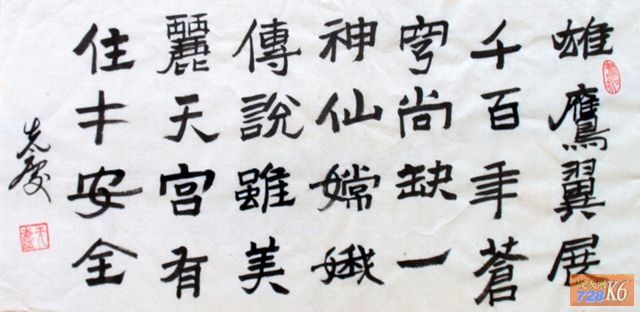 雄鷹翼展
千百年蒼
穹尚缺一
神仙嫦娥
傳說雖美
麗天宮有
住才安全
728K6